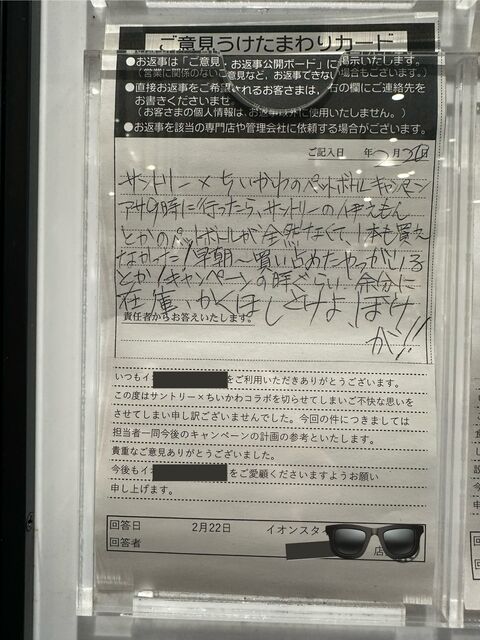 ご意見うけたまわりカード
●お返事は「ご意見・お返事公開ボード」に掲示いたします。
(営業に関係のないご意見など、お返事できない場合もございます。)
●直接お返事をご希望されるお客さまは、右の欄にご連絡先を
お書きくださいませ
(お客さまの個人情報は、お返事以外に使用いたしません。)
●お返事を該当の専門店や管理会社に依頼する場合がございます。
ご記入日 年 2月 21日
サントリー×ちいかわのペットボトルキャンペーン
アサ9時に行ったら、サントリーの伊えもん
とかのペットボトルが全然なくて、1本も買え
なかった!早朝〜買い占めたやつがいる
とか!キャンペーンの時ぐらい余分に
在庫、かくほしとけよ、ぼけ
が!!
責任者からお答えいたします。
いつもイオ をご利用いただきありがとうございます。
この度はサントリー×ちいかわコラボを切らせてしまいご不快な思いを
させてしまい申し訳ございませんでした。今回の件につきましては
担当者一同今後のキャンペーンの計画の参考といたします。
貴重なご意見ありがとうございました。
今後もイオ をご愛顧くださいますようお願い
申し上げます。
回答日 2月22日 イオンスタ
回答者 店